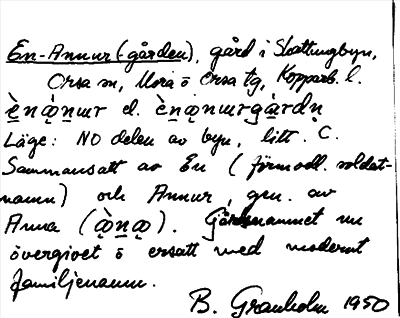 En-Annur(-gården), gård i Skattungbyn,
Orsa sn, Mora o Orsa tg, Kopparb. l.
ènànur el. ènànurgàrdn
Läge: NO delen av byn, litt. C.
Sammansatt av En (förmodl. soldat-
namn) och Annur, gen. av
Anna (àna). Gårdsnamnet nu
övergivet o ersatt med modernt
familjenamn.
B. Granholm 1950